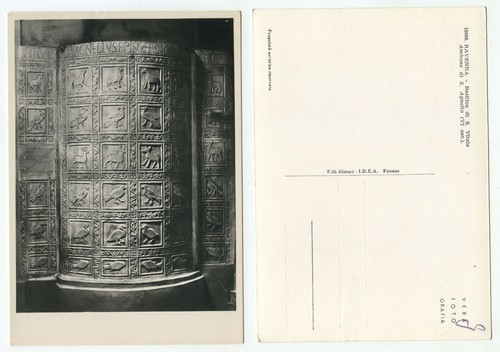 Proprietà artistica riservata
F.lli Alinari - I.D.E.A. Firenze
RAVENNA - Basilica di S. Vitale
Ambone di S. Agnello (VI sec.).
VERA
FOTO
GRAFIA